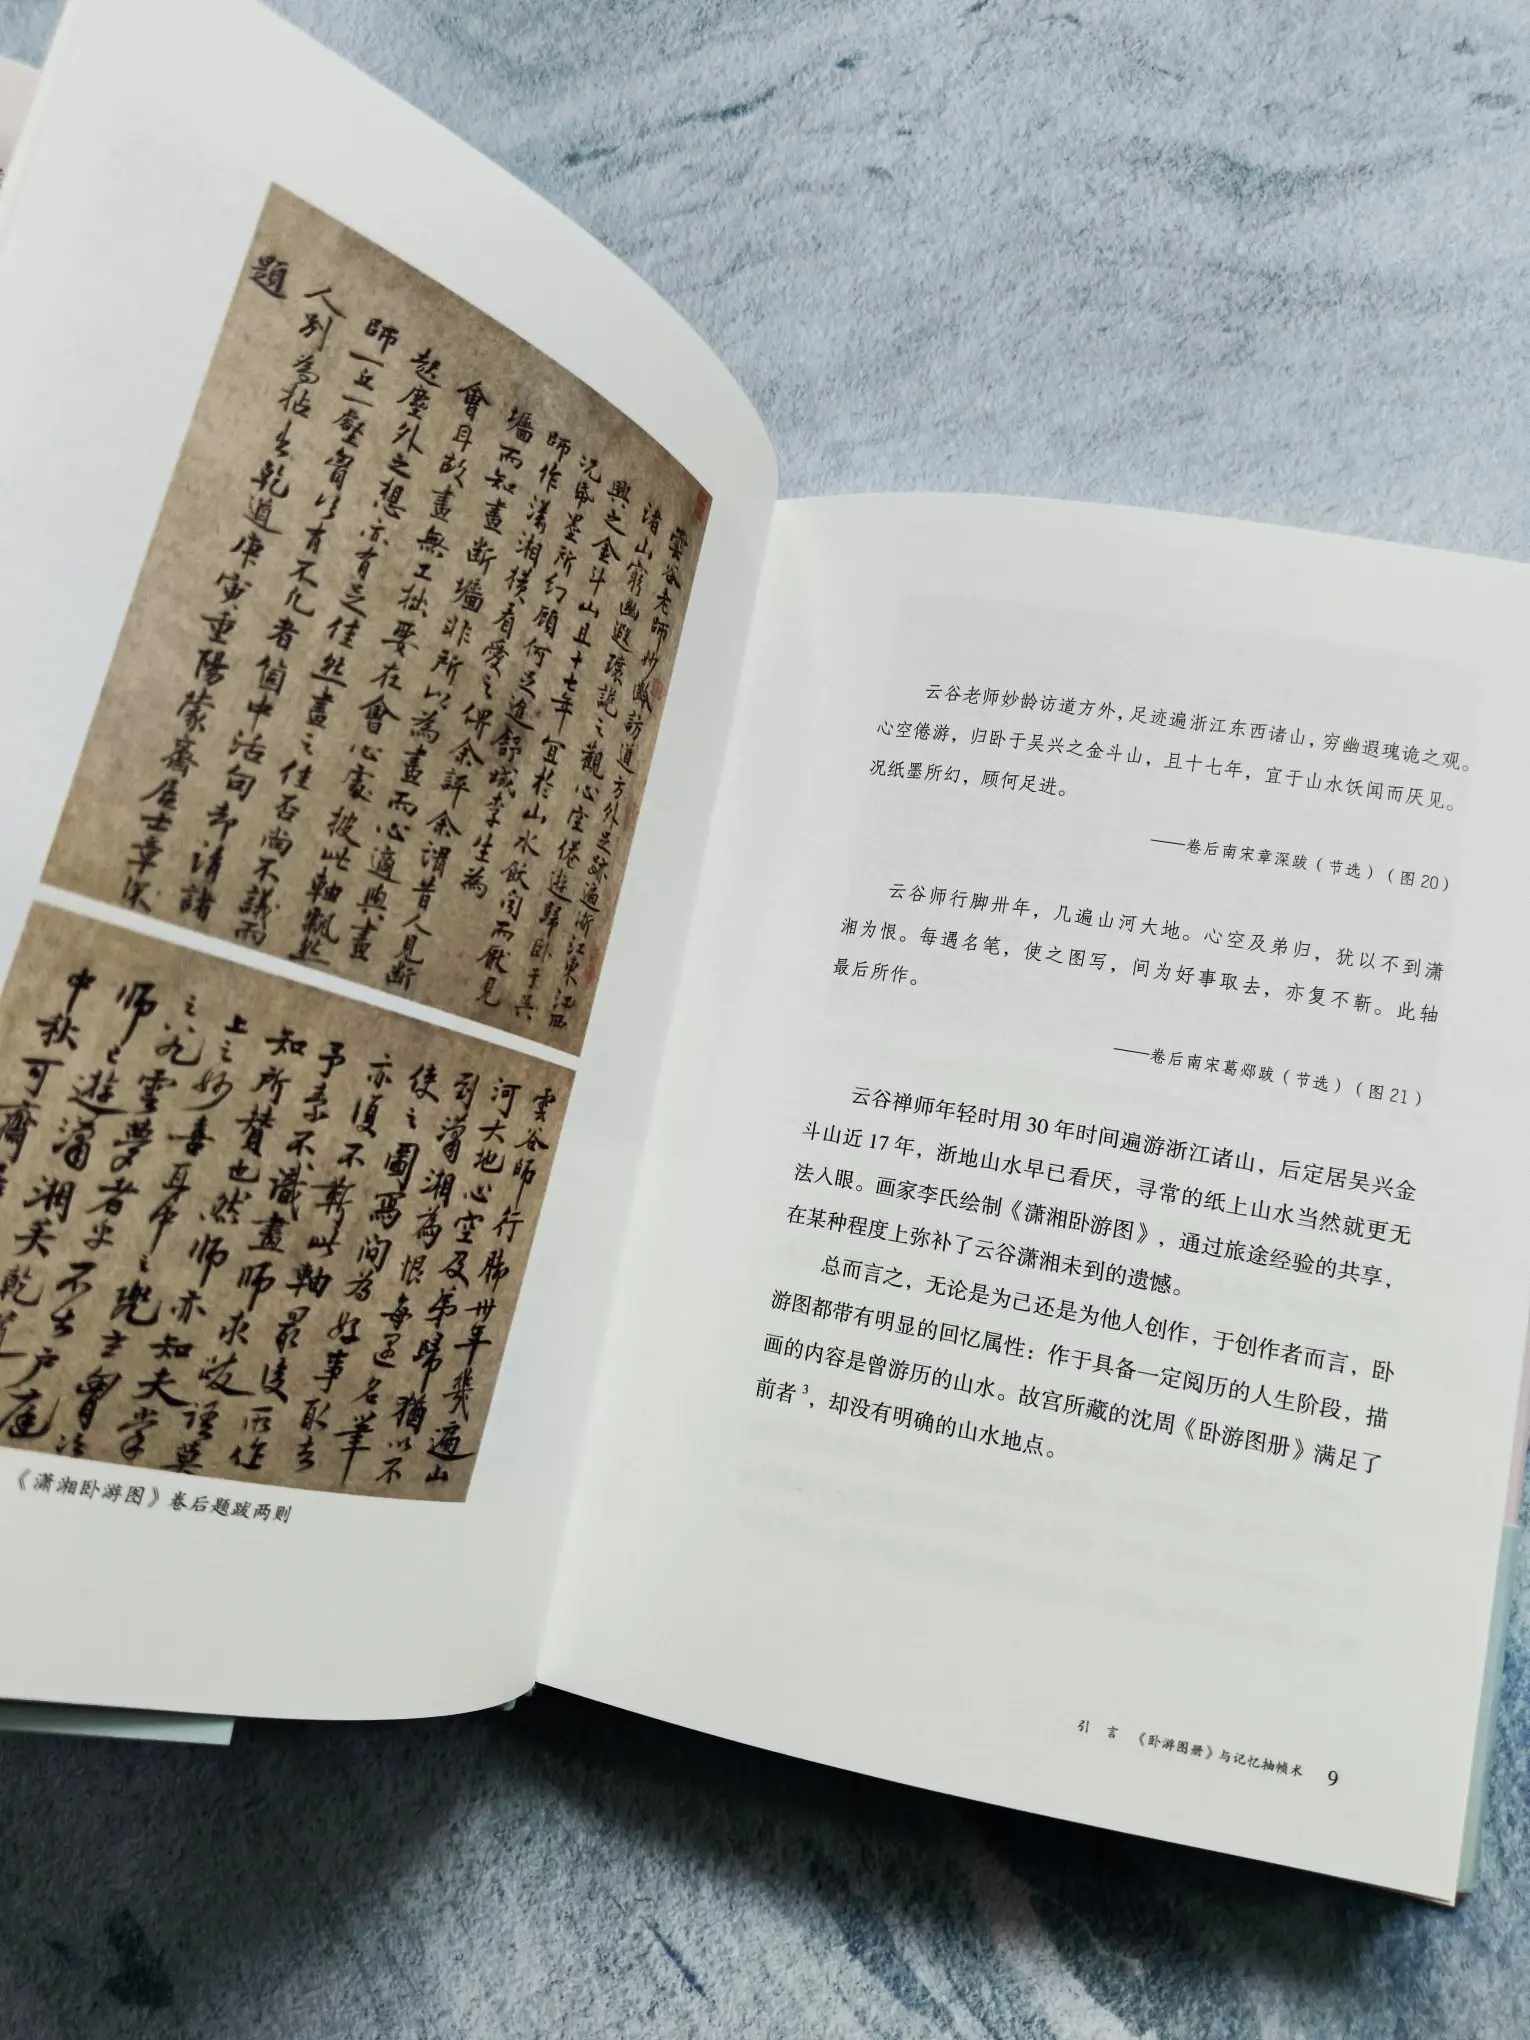 雲谷老師妙齡訪道方外足跡遍浙江東西
諸山窮幽遐瓌詭之觀心空倦遊歸卧于吳
興之金斗山且十七年宜於山水飫聞而厭見
況紙墨所幻顧何足進舒城李生為
師作瀟湘橫看愛之俾余評余謂昔人見斷
墻而知畫斷墻非所以為畫而心適與畫
會耳故畫無工拙要在會心處披此軸飄然
起塵外之想亦有足佳然畫之佳否尚不議而
師一丘一壑胷次有不凡者箇中活句却請諸
人別為拈出乾道庚寅重陽蒙齋居士章深
題
雲谷師行腳卅年幾遍山
河大地心空及弟歸猶以不
到瀟湘為恨每遇名筆
使之圖寫間為好事取去
亦復不靳此軸最後所作
予素不識畫師求跋語莫
知所贊也然師亦知夫掌
上之妙喜耳中之兜玄胷次
之八九雲夢者乎不出戶庭
師已遊瀟湘矣乾道
中秋可齋
《潇湘卧游图》卷后题跋两则
云谷老师妙龄访道方外，足迹遍浙江东西诸山，穷幽遐瑰诡之观。
心空倦游，归卧于吴兴之金斗山，且十七年，宜于山水饫闻而厌见。
况纸墨所幻，顾何足进。
——卷后南宋章深跋（节选）（图20）
云谷师行脚卅年，几遍山河大地。心空及弟归，犹以不到潇
湘为恨。每遇名笔，使之图写，间为好事取去，亦复不靳。此轴
最后所作。
——卷后南宋葛郯跋（节选）（图21）
云谷禅师年轻时用30年时间遍游浙江诸山，后定居吴兴金
斗山近17年，浙地山水早已看厌，寻常的纸上山水当然就更无
法入眼。画家李氏绘制《潇湘卧游图》，通过旅途经验的共享，
在某种程度上弥补了云谷潇湘未到的遗憾。
总而言之，无论是为己还是为他人创作，于创作者而言，卧
游图都带有明显的回忆属性：作于具备一定阅历的人生阶段，描
画的内容是曾游历的山水。故宫所藏的沈周《卧游图册》满足了
前者³，却没有明确的山水地点。
引 言 《卧游图册》与记忆抽帧术 9